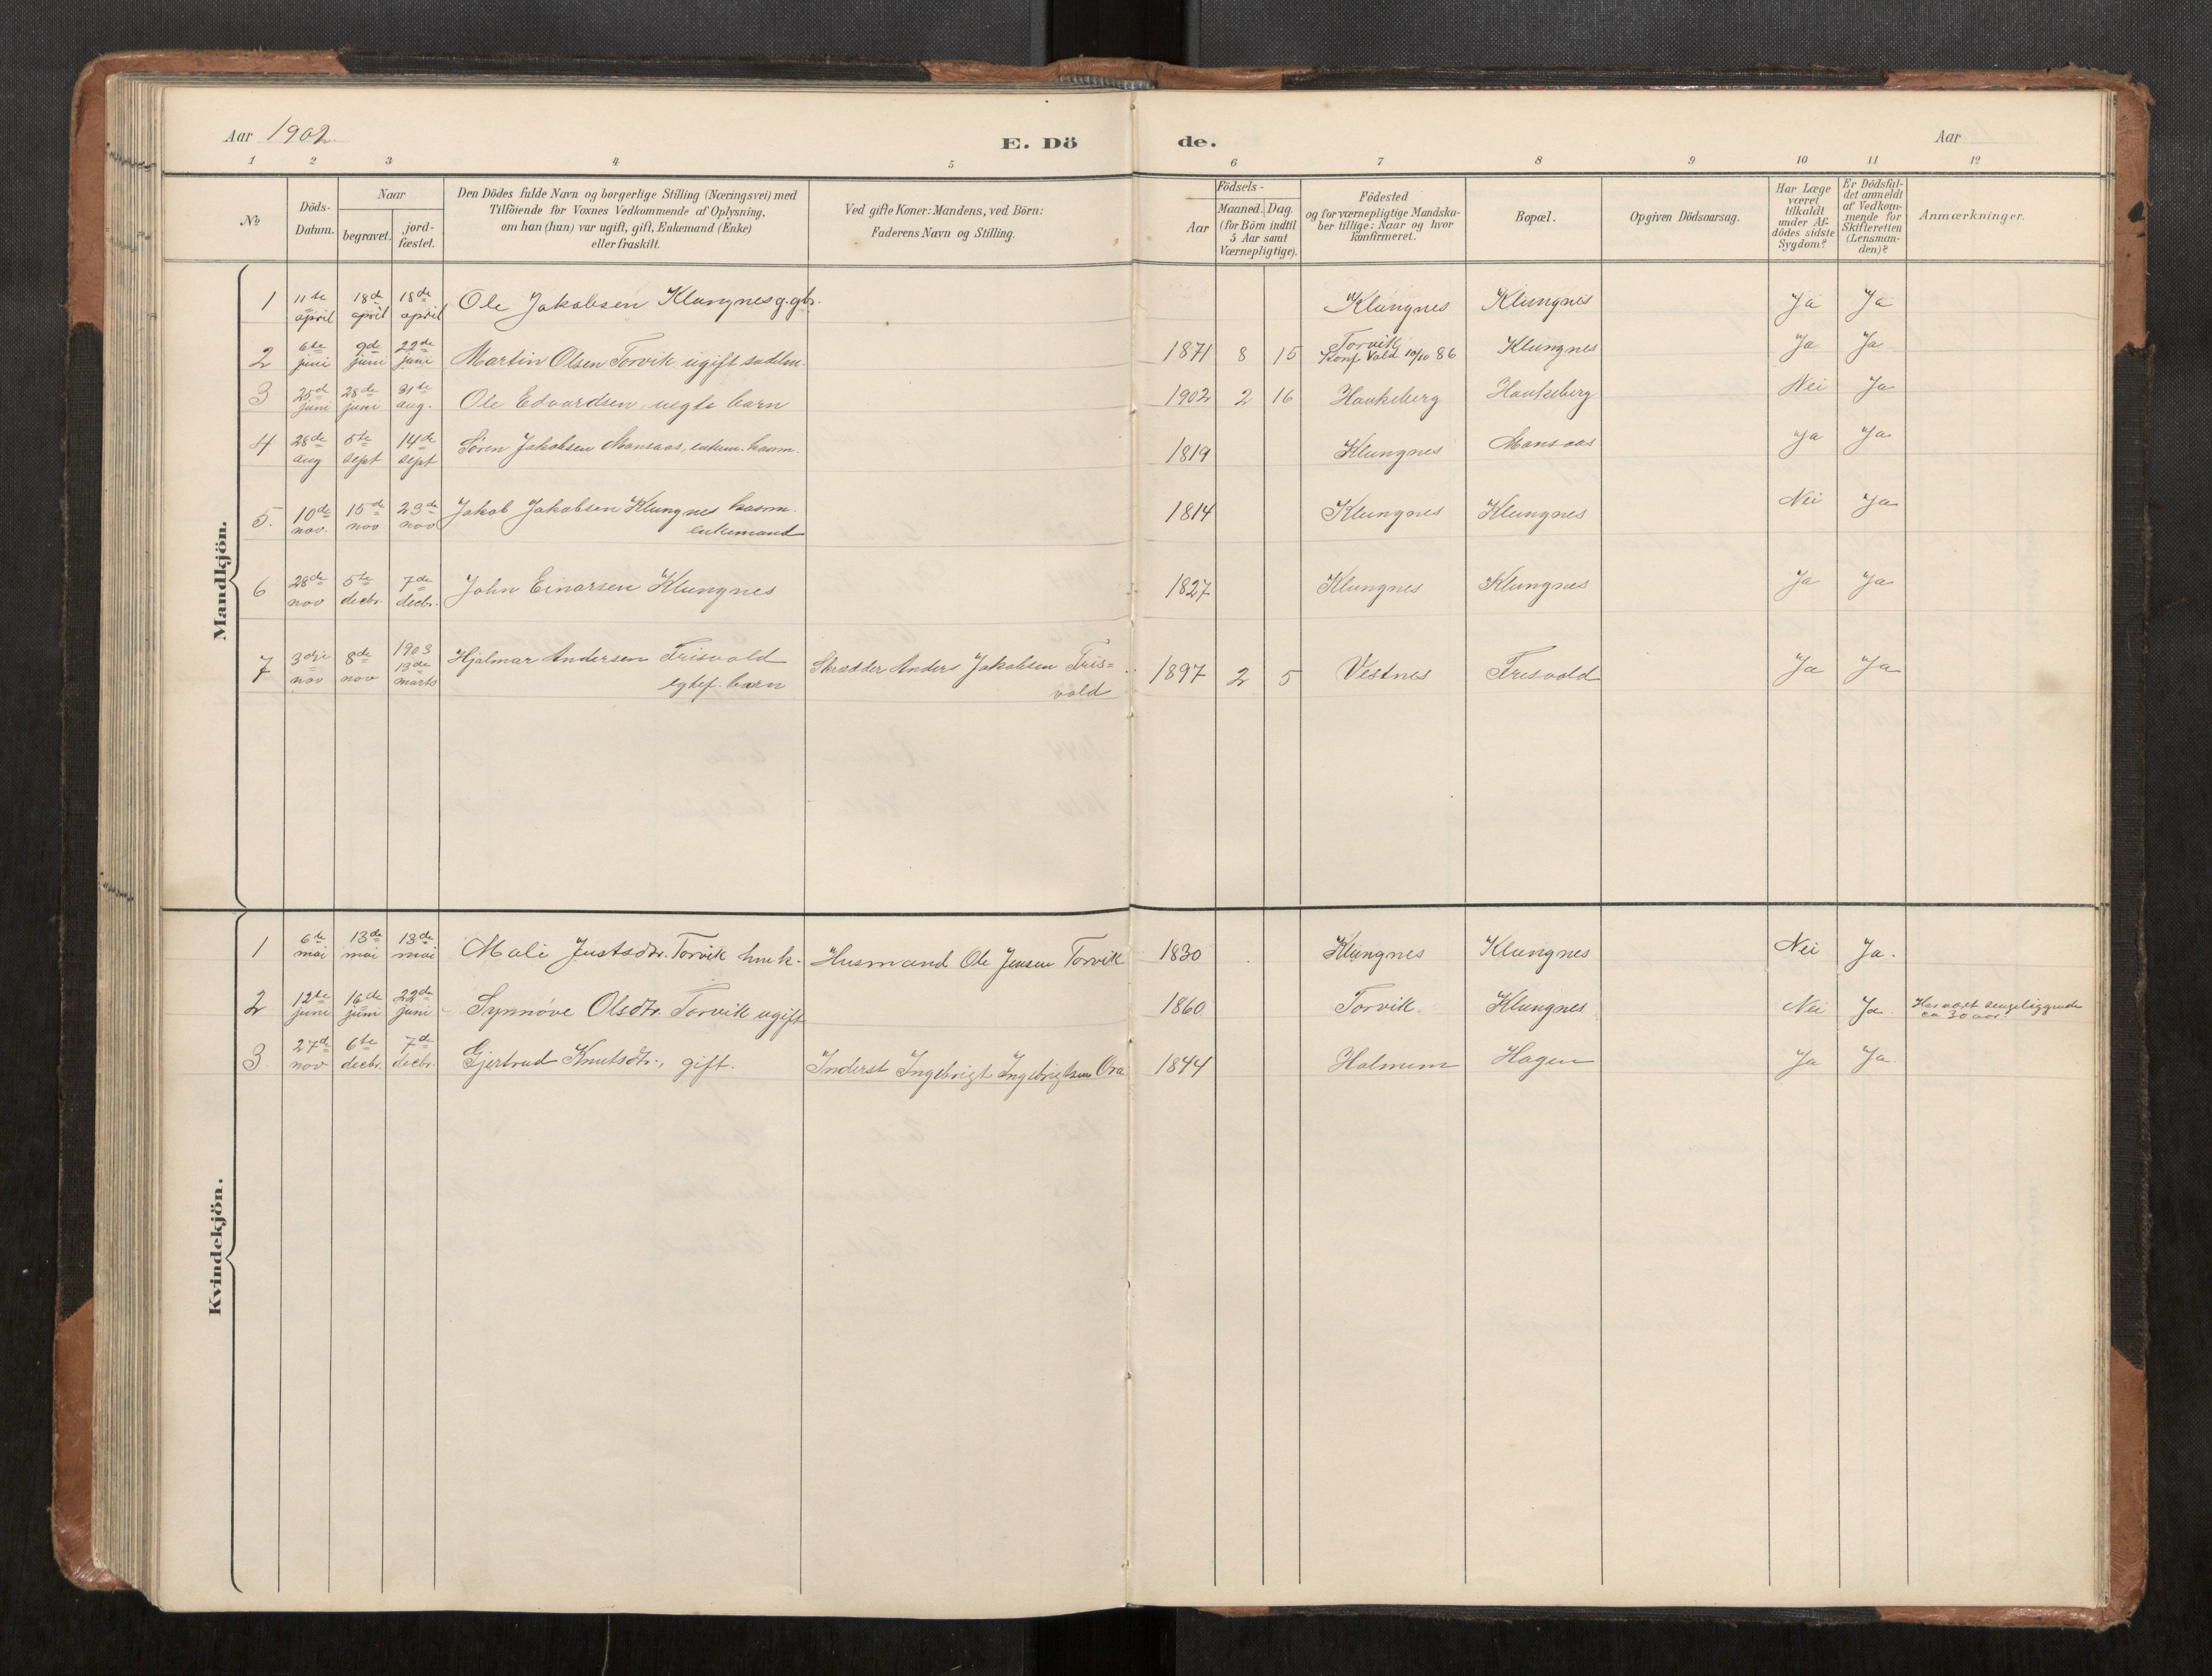 Aar 1902
E. Dö
de.
Aar
1 2 3 4 5 6 7 8 9 10 11 12
No
Döds-
Datum.
Naar
begravet.
jord-
fæstet.
Den Dödes fulde Navn og borgerlige Stilling (Næringsvei) med
Tilföiende for Voxnes Vedkommende af Oplysning,
om han (hun) var ugift, gift, Enkemand (Enke)
eller fraskilt.
Ved gifte Koner: Mandens, ved Börn:
Faderens Navn og Stilling.
Födsels-
Aar
Maaned.
Dag.
(for Börn indtil
5 Aar samt
Værnepligtige).
Födested
og for værnepligtige Mandska-
ber tillige: Naar og hvor
konfirmeret.
Bopæl.
Opgiven Dödsaarsag.
Har Læge
været
tilkaldt
under Af-
dödes sidste
Sygdom?
Er Dödsfal-
det anmeldt
af Vedkom-
mende for
Skifteretten
(Lensman-
den)?
Anmærkninger.
Mandkjön.
1 11te april 18de april 18de april Ole Jakobsen Klungnes g. gbr. Klungnes Klungnes Ja Ja
2 6te juni 9de juni 22de juni Martin Olsen Torvik ugift sadelm. 1871 8 15 Torvik Konf. Vold 10/10 86 Klungnes Ja Ja
3 25d juni 28de juni 31te aug. Ole Edvardsen, uegte barn 1902 2 16 Haukeberg Haukeberg Nei Ja
4 28de aug 5te sept 14de sept Søren Jakobsen Monsaas, enkem. kaarm. 1819 Klungnes Monsaas Ja Ja
5. 10de nov. 15de nov 23de nov Jakob Jakobsen Klungnes kaarm.
enkemand 1814 Klungnes Klungnes Nei Ja
6 28de nov 5te decbr. 7de decbr. John Einarsen Klungnes 1827 Klungnes Klungnes Ja Ja
7 3dje nov 8de nov 1903 13de marts Hjalmar Andersen Frisvold Skrædder Anders Jakobsen Fris=
egtef. barn vold 1897 2 5 Vestnes Frisvold Ja Ja
Kvindekjön.
1 6te mai 13de mai 13de mai Mali Justsdtr. Torvik hmk. Husmand Ole Jensen Torvik 1830 Klungnes Klungnes Nei Ja.
2 12te juni 16de juni 22de juni Synnøve Olsdtr. Torvik ugift 1860 Torvik. Klungnes Nei Ja. Har vært sengeliggende
ca 30 aar.
3. 27de nov 6te decbr. 7de decbr. Gjertrud Knutsdtr., gift. Inderst Ingebrigt Ingebrigtsen Øra 1844 Holmem Hagen Ja Ja